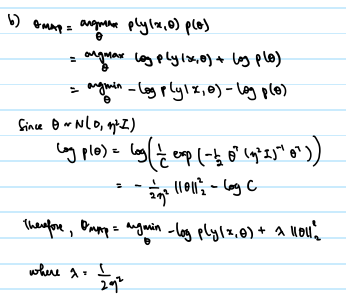 b) θ_MAP = argmax_θ p(y|x,θ) p(θ)
= argmax_θ log p(y|x,θ) + log p(θ)
= argmin_θ - log p(y|x,θ) - log p(θ)
Since θ ~ N(0, η²I)
log p(θ) = log(1/C exp(-1/2 θᵀ (η²I)⁻¹ θᵀ))
= - 1/2η² ||θ||₂² - log C
Therefore, θ_MAP = argmin_θ - log p(y|x,θ) + λ ||θ||₂²
where λ = 1/2η²